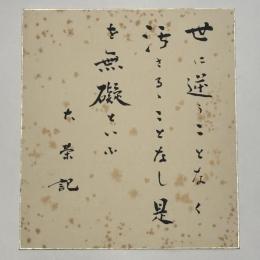 世に逆うことなく
汚さるゝことなし是
を無礙といふ
大榮記